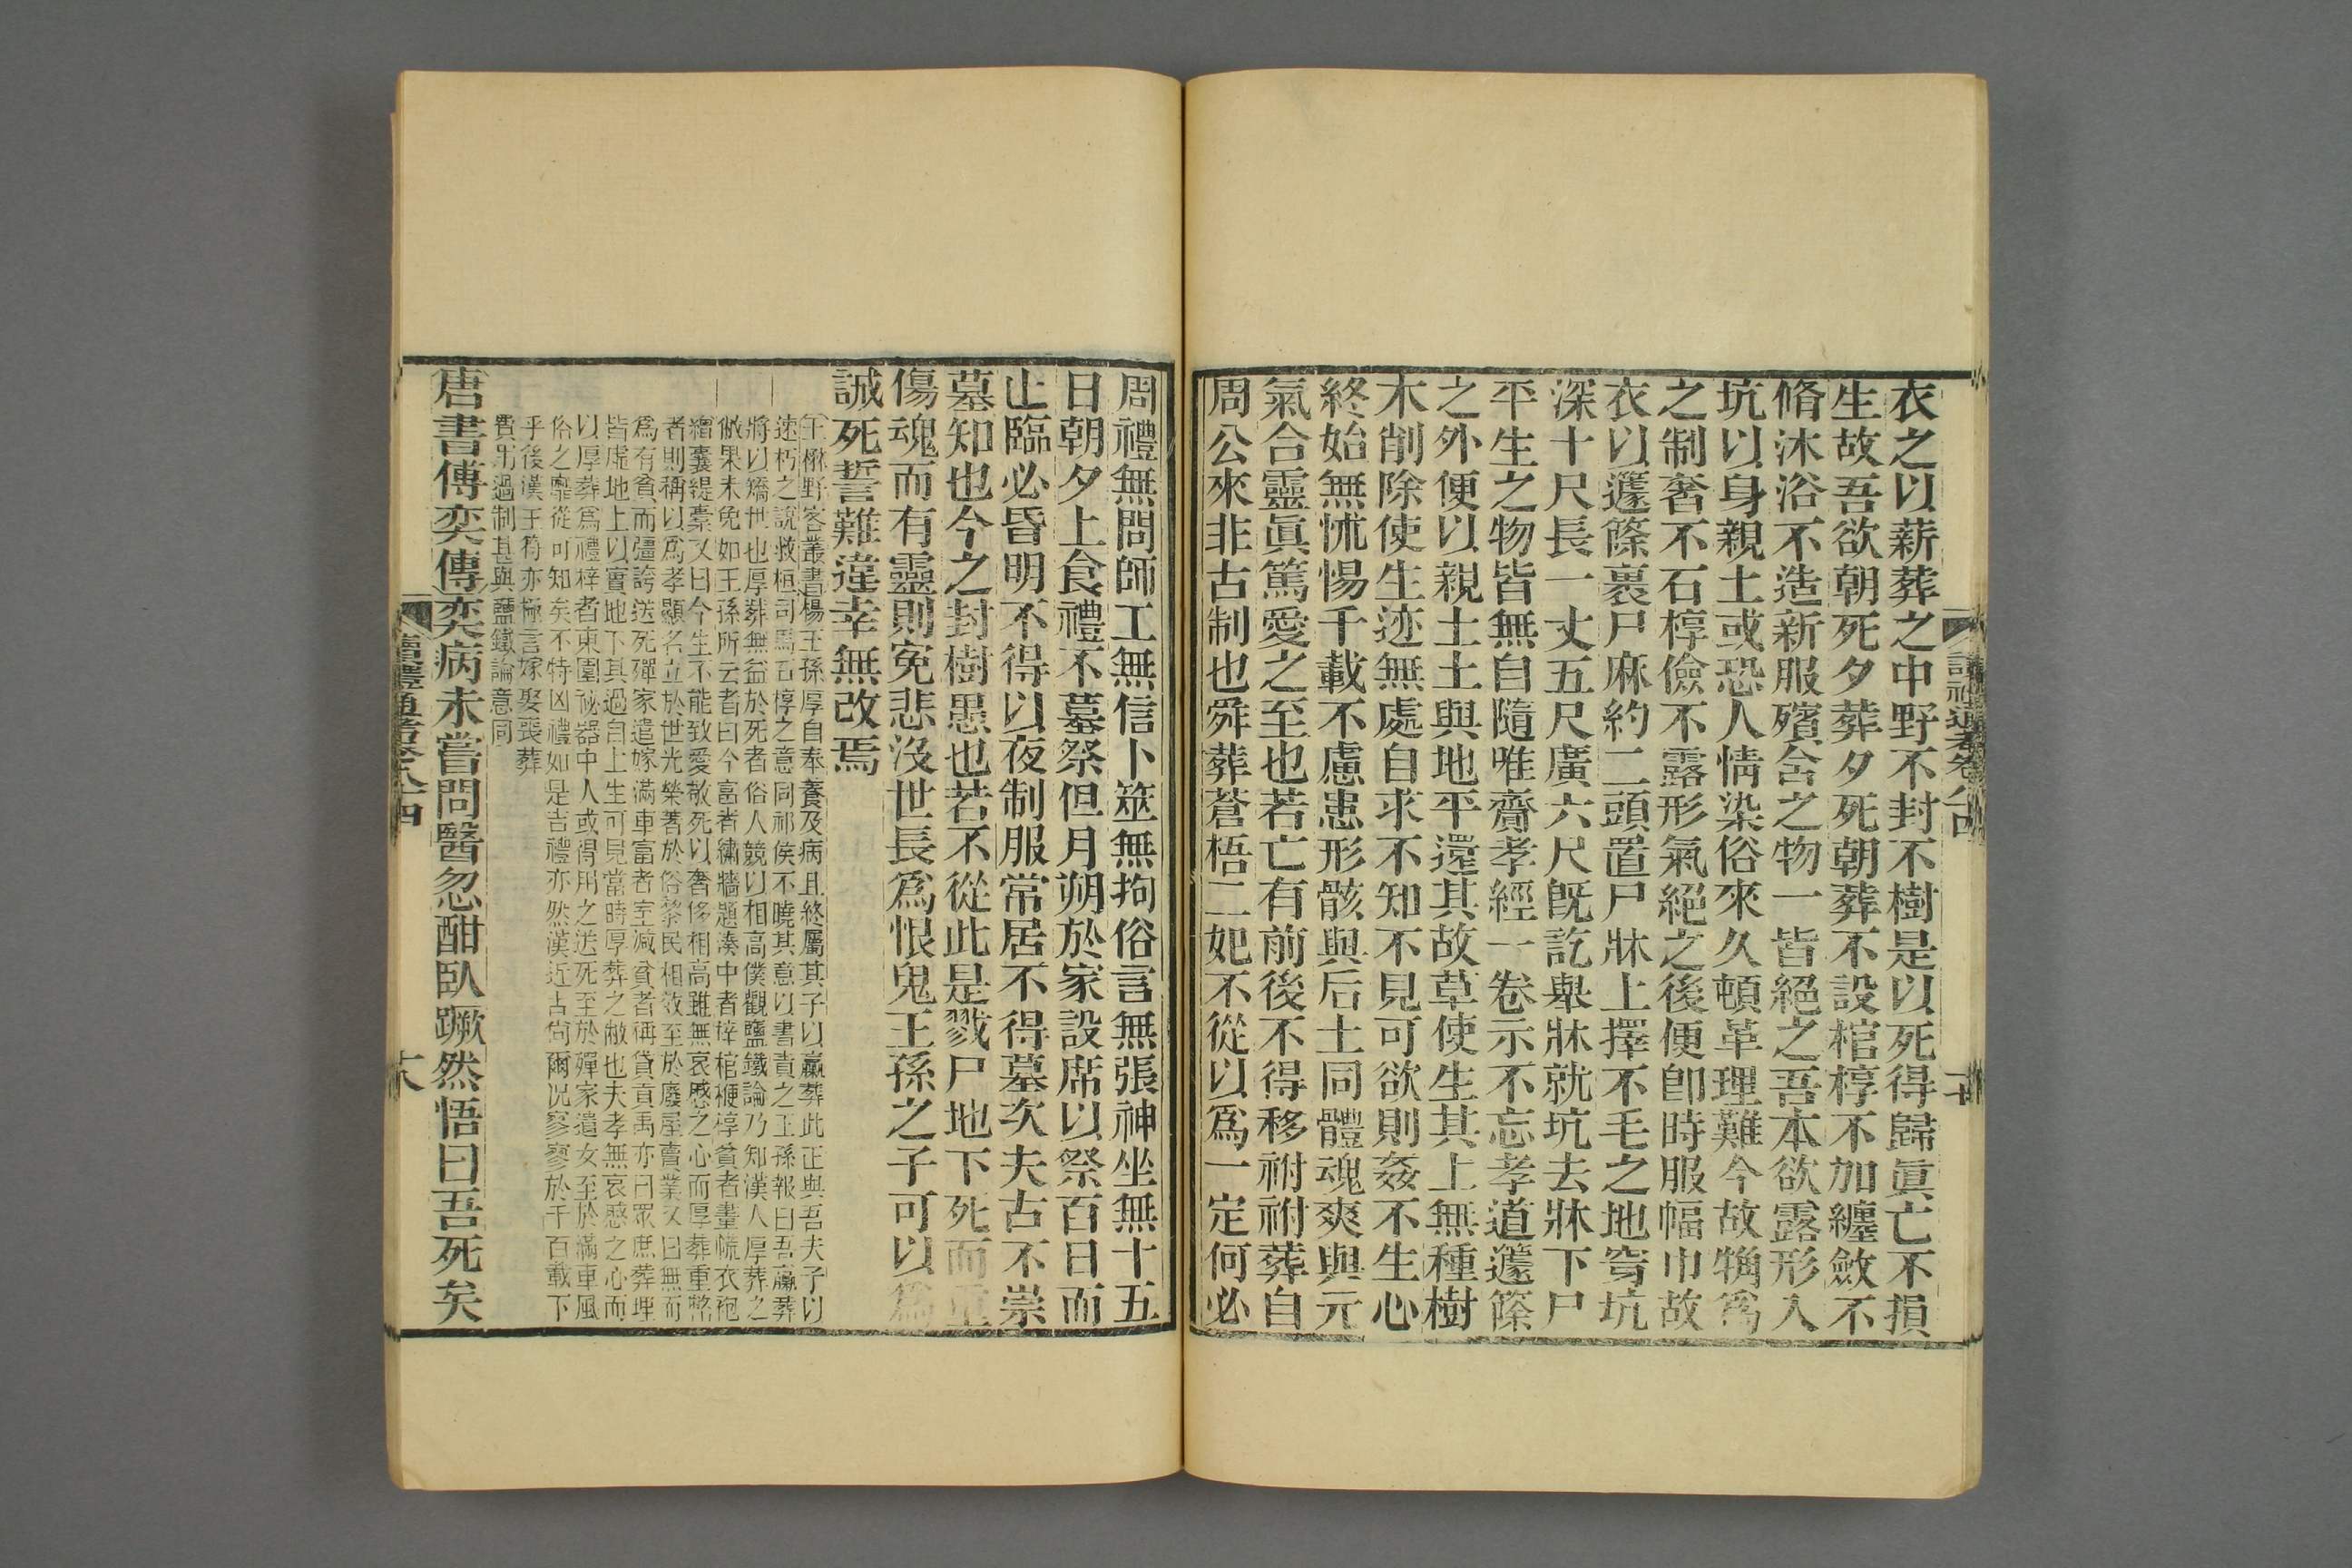 衣之以薪葬之中野不封不樹是以死得歸眞亡不損
生故吾欲朝死夕葬夕死朝葬不設棺椁不加纏斂不
脩沐浴不造新服殯含之物一皆絕之吾本欲露形入
坑以身親土或恐人情染俗來久頓革理難今故觕爲
之制奢不石椁儉不露形氣絕之後便卽時服幅巾故
衣以籧篨裹尸麻約二頭置尸牀上擇不毛之地穿坑
深十尺長一丈五尺廣六尺旣訖舉牀就坑去牀下尸
平生之物皆無自隨唯齎孝經一卷示不忘孝道籧篨
之外便以親土土與地平還其故草使生其上無種樹
木削除使生迹無處自求不知不見可欲則姦不生心
終始無怵惕千載不慮患形骸與后土同體魂爽與元
氣合靈眞篤愛之至也若亡有前後不得移祔祔葬自
周公來非古制也舜葬蒼梧二妃不從以爲一定何必
周禮無問師工無信卜筮無拘俗言無張神坐無十五
日朝夕上食禮不墓祭但月朔於家設席以祭百日而
止臨必昏明不得以夜制服常居不得墓次夫古不崇
墓知也今之封樹愚也若不從此是戮尸地下死而重
傷魂而有靈則寃悲沒世長爲恨鬼王孫之子可以爲
誡死誓難違幸無改焉
王楙野客叢書楊王孫厚自奉養及病且終屬其子以羸葬此正與吾夫子以
速朽之說救桓司馬石椁之意同祁侯不曉其意以書責之王孫報曰吾羸葬
將以矯世也厚葬無益於死者俗人競以相高僕觀鹽鐵論乃知漢人厚葬之
敝果未免如王孫所云者曰今富者繡牆題湊中者梓棺楩椁貧者畫㡆衣袍
繒囊緹橐又曰今生不能致愛敬死以奢侈相高雖無哀慼之心而厚葬重幣
者則稱以爲孝顯名立於世光榮著於俗黎民相效至於廢屋賣業又曰無而
爲有貧而彊誇送死殫家遣嫁滿車富者室減貧者稱貸貢禹亦曰眾庶葬埋
皆虛地上以實地下其過自上生可見當時厚葬之敝也夫孝無哀慼之心而
以厚葬爲禮梓者東園祕器中人或得用之送死至於殫家遣女至於滿車風
俗之靡從可知矣不特凶禮如是吉禮亦然漢近古尙爾況寥寥於千百載下
乎後漢王符亦極言嫁娶喪葬
費用過制甚與鹽鐵論意同
唐書傅奕傳奕病未嘗問醫忽酣臥蹶然悟曰吾死矣